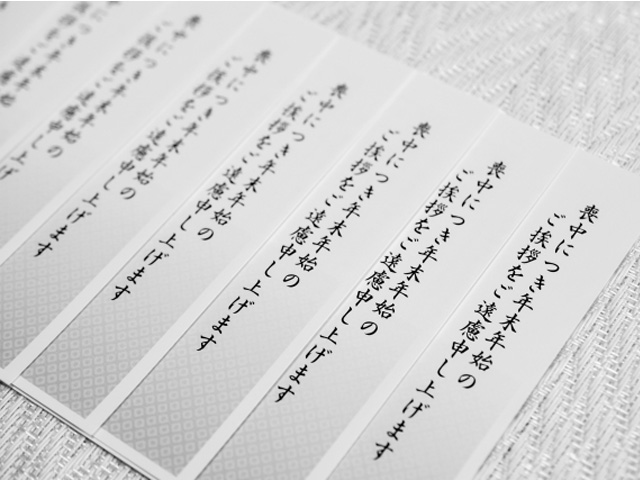 喪中につき年末年始の
ご挨拶をご遠慮申し上げます
喪中につき年末年始の
ご挨拶をご遠慮申し上げます
喪中につき年末年始の
ご挨拶をご遠慮申し上げます
喪中につき年末年始の
ご挨拶をご遠慮申し上げます
喪中につき年末年始の
ご挨拶をご遠慮申し上げます
喪中につき年末年始の
ご挨拶をご遠慮申し上げ